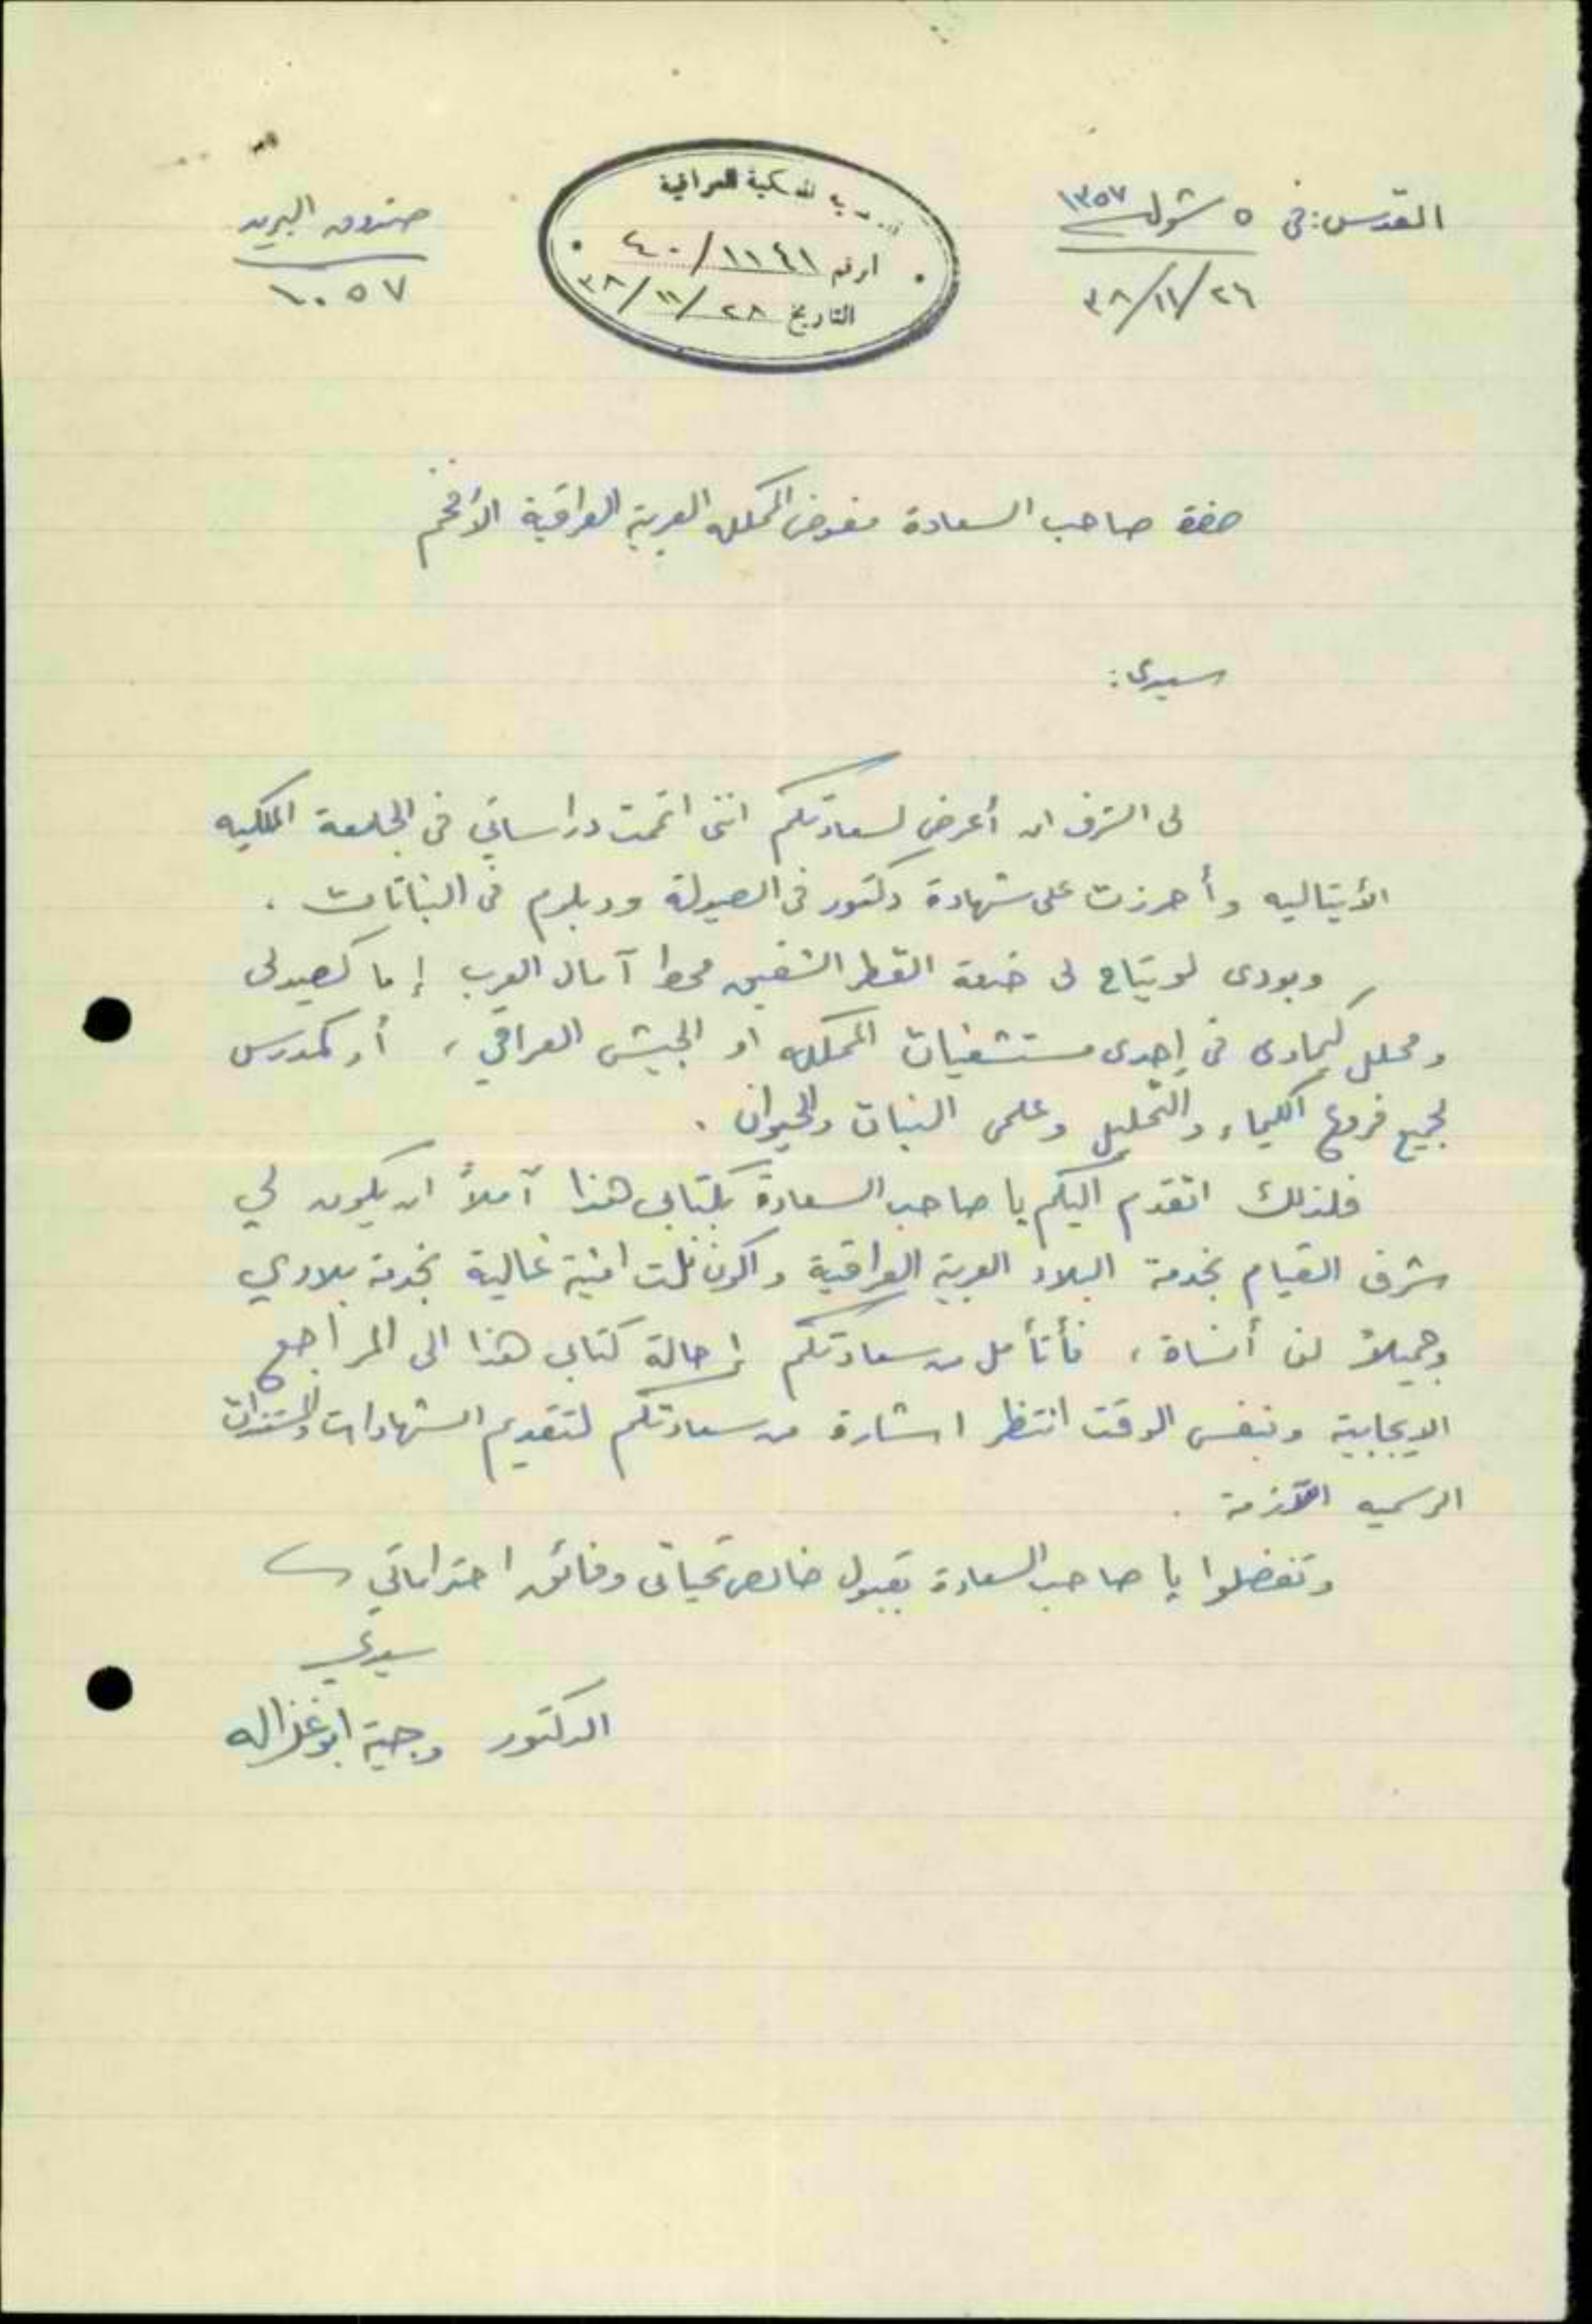 القدس: في ٥ شوال ١٣٥٧
٢٦/١١/٣٨
الملكية العراقية
الرقم ١١٤١/٤٠
التاريخ ٢٨/١١/٣٨
صندوق البريد
١٠٥٧
حضرة صاحب السعادة مفوض المملكه العربية العراقية الأفخم
سيدي:
لي الشرف ان أعرض لسعادتكم انني اتممت دراساتي في الجامعة الملكيه
الأيتاليه وأحرزت على شهادة دكتور في الصيدلة ودبلوم في النباتات .
وبودى لو يتاح لى خدمة القطر الشقيق محط آمال العرب إما كصيدلى
ومحلل كيماوى في إحدى مستشفيات المملكه او الجيش العراقي ، أو كمدرس
لجميع فروع الكيمياء والتحليل وعلمى النبات والحيوان .
فلذلك اتقدم اليكم يا صاحب السعادة بكتابى هذا آملاً ان يكون لي
شرف القيام بخدمة البلاد العربية العراقية واكون نلت امنية غالية بخدمة بلادي
وجميلاً لن أنساه ، فأتأمل من سعادتكم إحالة كتابي هذا الى المراجع
الايجابية وبنفس الوقت انتظر اشارة من سعادتكم لتقديم الشهادات والمستندات
الرسميه اللآزمة .
وتفضلوا يا صاحب السعادة بقبول خالص تحياتى وفائق احتراماتي
سيدي
الدكتور وجيه ابوغزاله